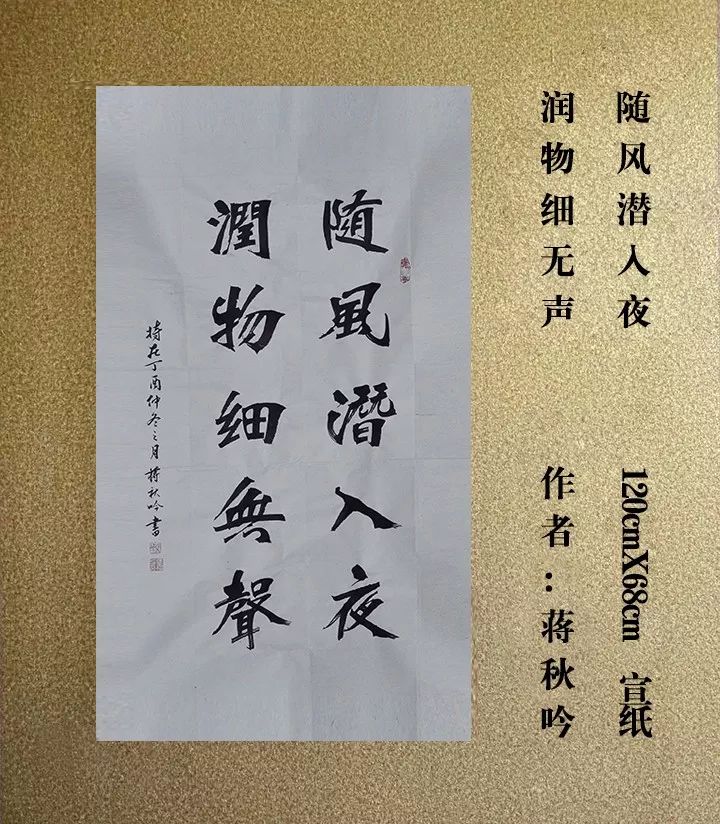 随风潜入夜
润物细无声
120cmX68cm 宣纸
作者：蒋秋吟
随風潛入夜
潤物细無聲
時在丁酉仲冬之月蒋秋吟書